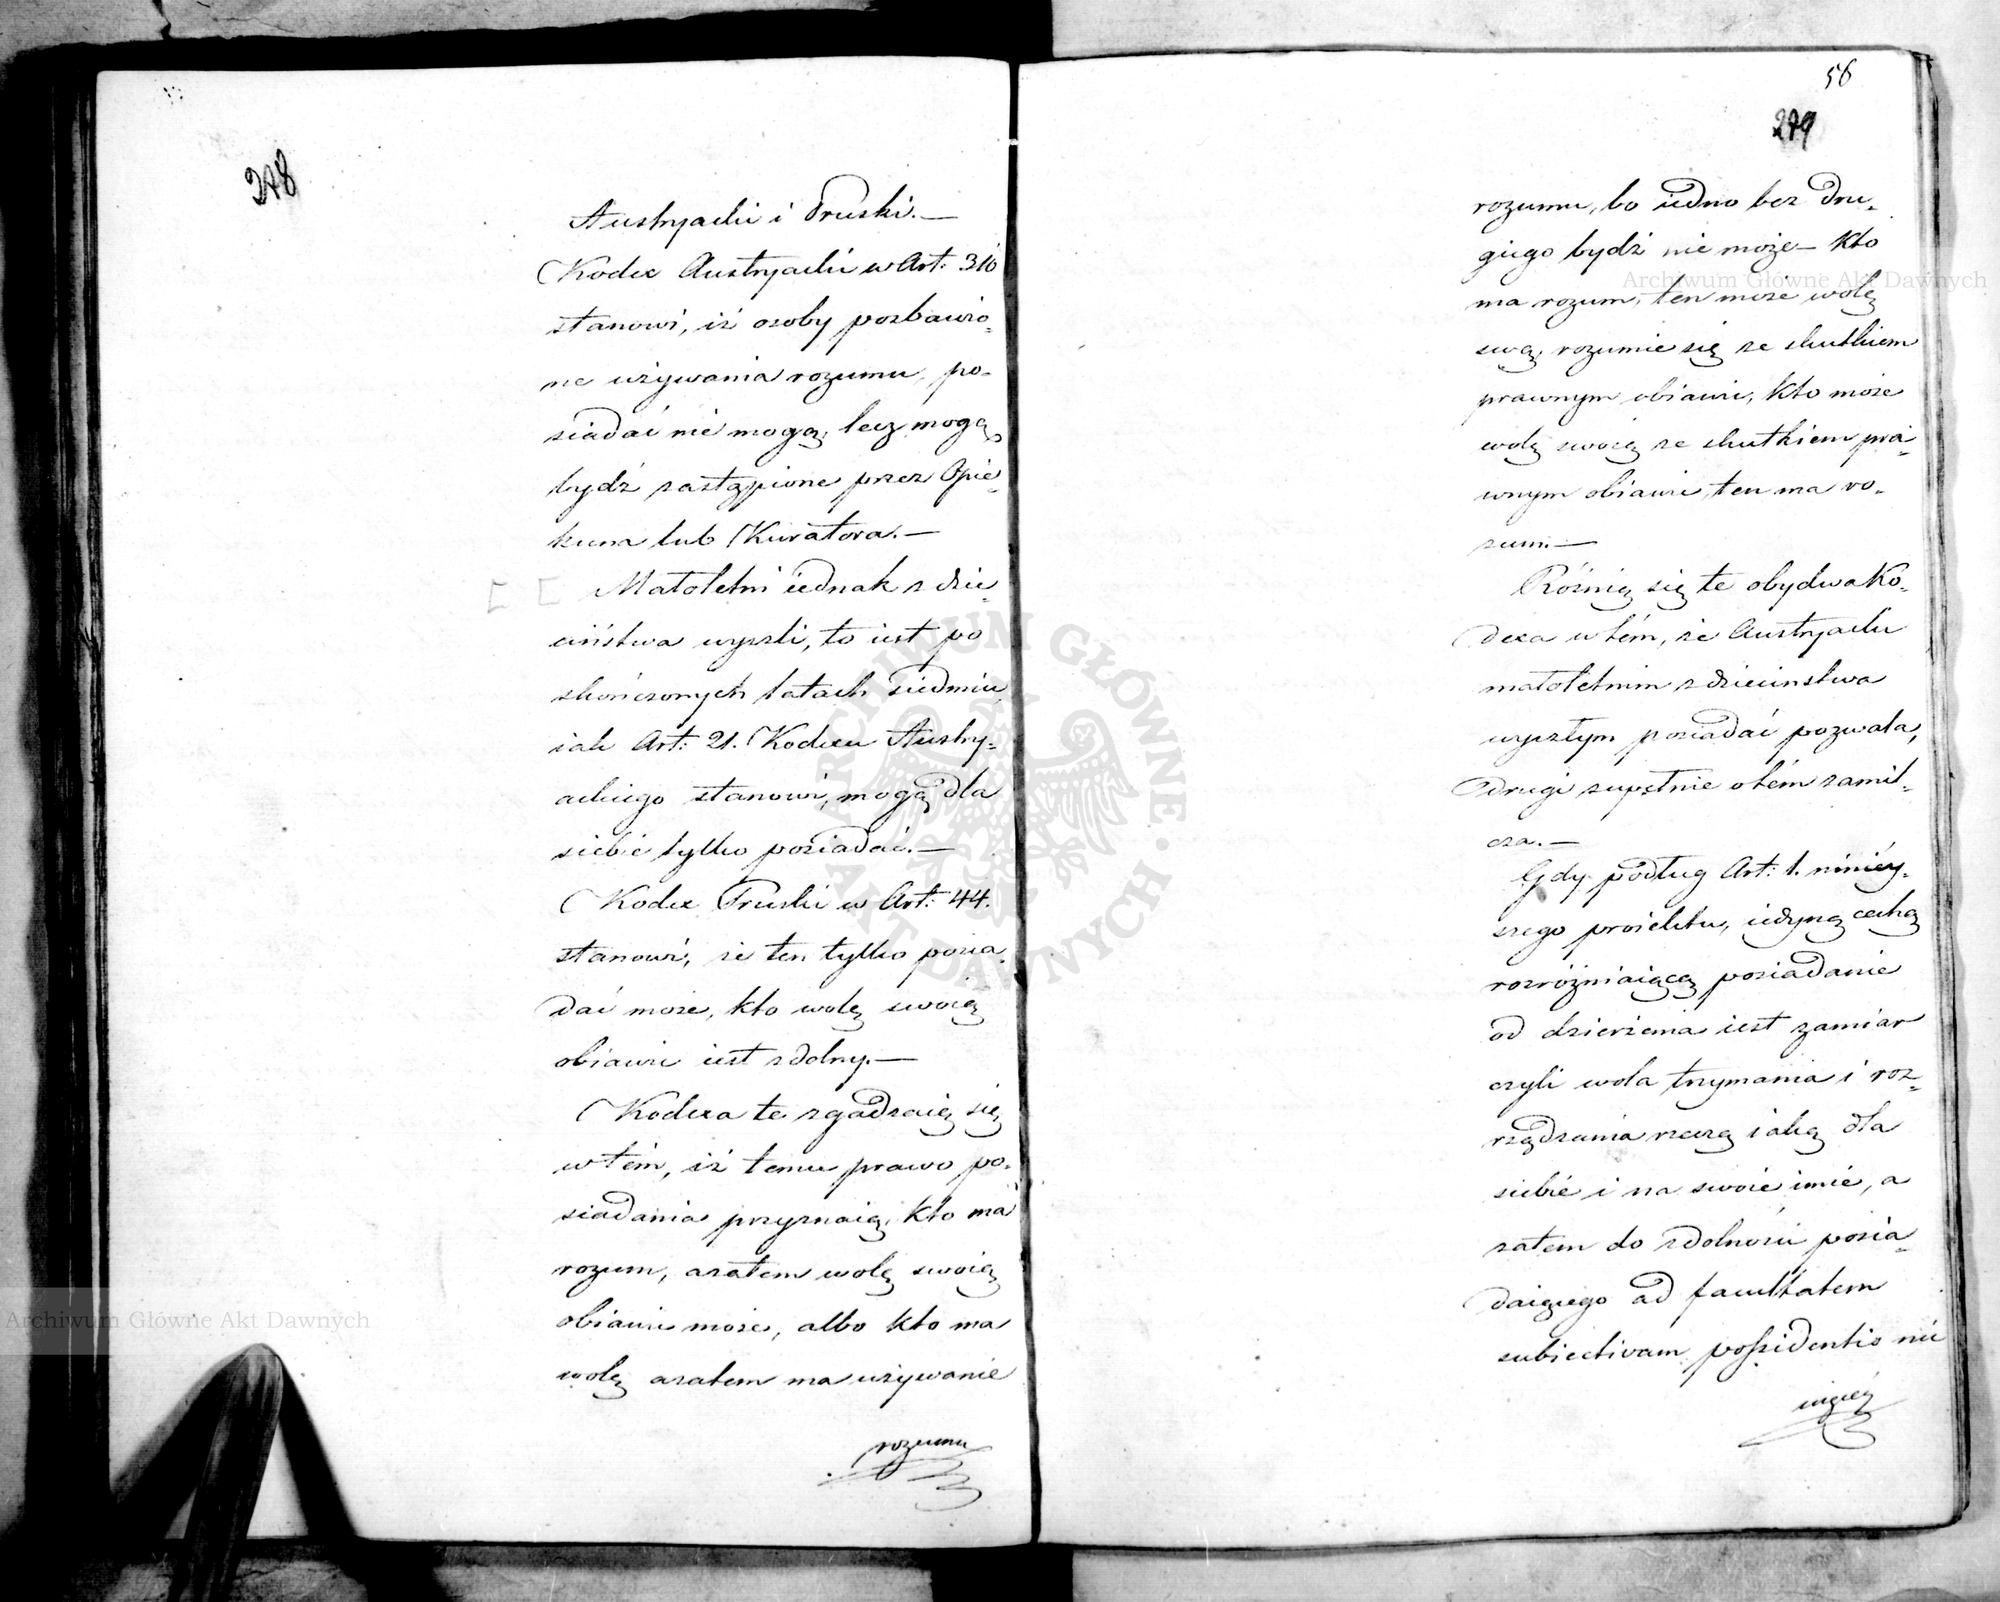 278
Austryacki i Pruski.—
Kodex Austryacki w Art: 310
stanowi, iż osoby pozbawio-
ne używania rozumu, po-
siadać nie mogą, lecz mogą
bydź zastąpione przez Opie-
kuna lub Kuratora.—
Małoletni iednak z dzie-
ciństwa wyszli, to iest po
skończonych latach siedmiu
iak Art: 21. Kodexu Austry-
ackiego stanowi, mogą dla
siebie tylko posiadać.—
Kodex Pruski w Art: 44.
stanowi, że ten tylko posia-
dać może, kto wolę swoią
obiawić iest zdolny.—
Kodexa te zgadzaią się
w tém, iż temu prawo po-
siadania przyznaią, kto ma
rozum, a zatem wolę swoią
obiawić może, albo kto ma
wolę a zatem ma używanie
rozumu
56
279
rozumu, bo iedno bez dru-
giego bydź nie może — kto
ma rozum, ten może wolę
swą, rozumie się ze skutkiem
prawnym obiawić, kto może
wolę swoią ze skutkiem pra-
wnym obiawić, ten ma ro-
zum.—
Różnią się te obydwa Ko-
dexa w tém, że Austryacki
małoletnim z dzieciństwa
wyszłym posiadać pozwala,
drugi zupełnie o tém zamil-
cza.—
Gdy podług Art: 1. niniey-
szego proiektu, iedyną cechą
rozróżniaiącą posiadanie
od dzierżenia iest zamiar
czyli wola trzymania i roz-
rządzania rzeczą iaką dla
siebie i na swoie imie, a
zatem do zdolności posia-
daiącego ad facultatem
subiectivam possidentis nie
więcéy
Archiwum Główne Akt Dawnych
Archiwum Główne Akt Dawnych
ARCHIWUM GŁÓWNE · AKT DAWNYCH ·